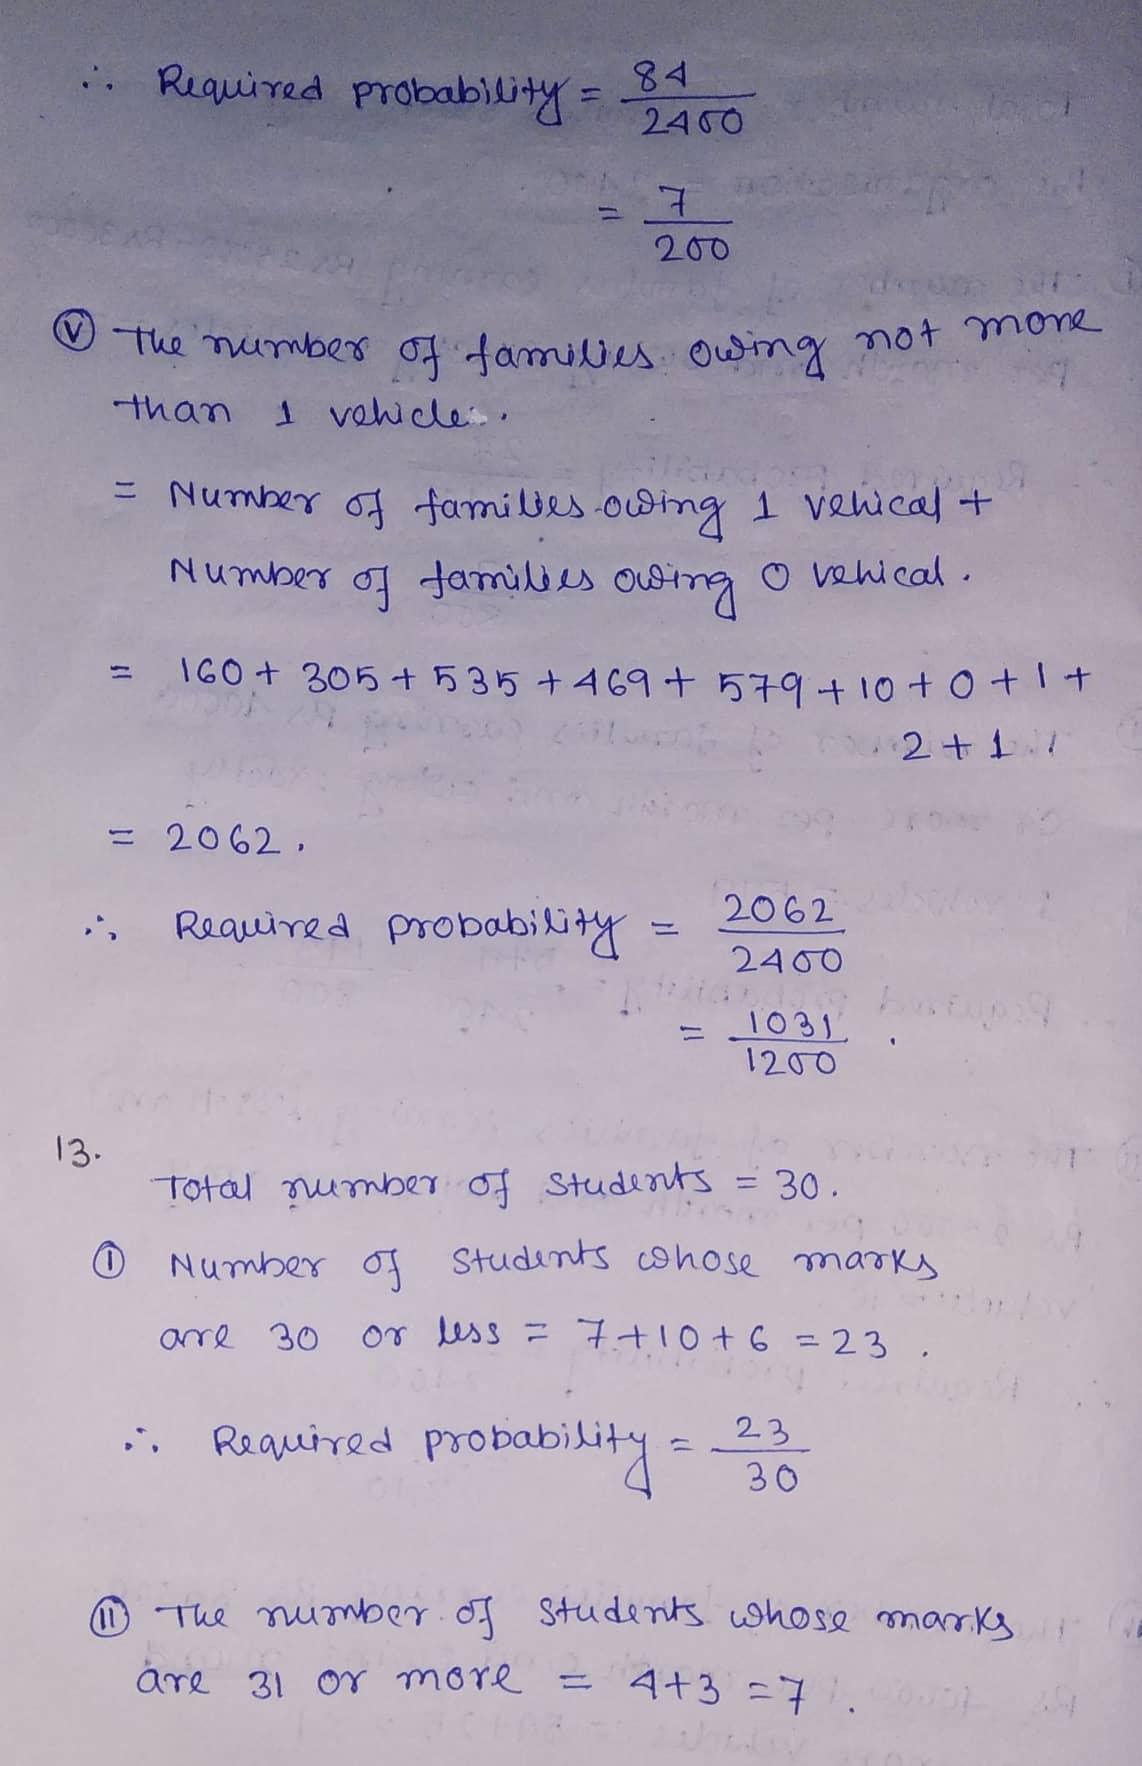 ∴ Required probability = 84/2400
= 7/200
(V) The number of families owing not more
than 1 vehicle.
= Number of families owing 1 vehical +
Number of families owing 0 vehical.
= 160 + 305 + 535 + 469 + 579 + 10 + 0 + 1 +
2 + 1
= 2062.
∴ Required probability = 2062/2400
= 1031/1200.
13.
Total number of students = 30.
(I) Number of students whose marks
are 30 or less = 7+10+6 = 23.
∴ Required probability = 23/30
(II) The number of students whose marks
are 31 or more = 4+3 = 7.